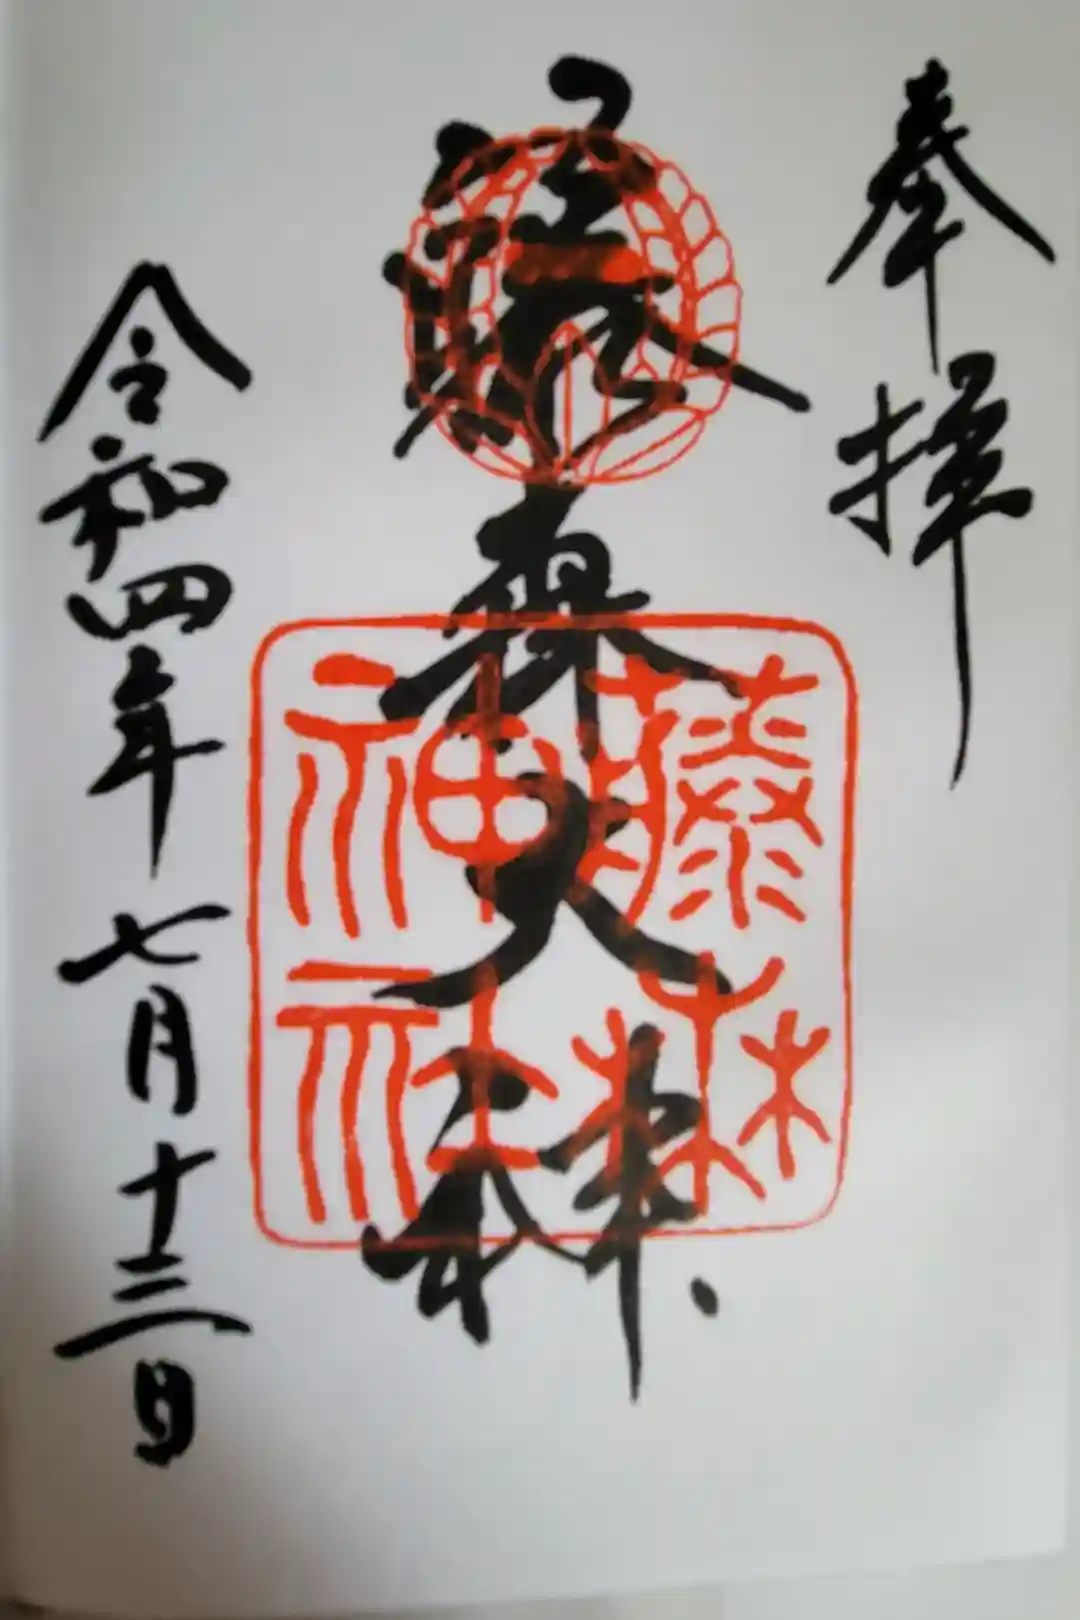 奉拝
藤森大神
藤森
神社
令和四年七月十三日